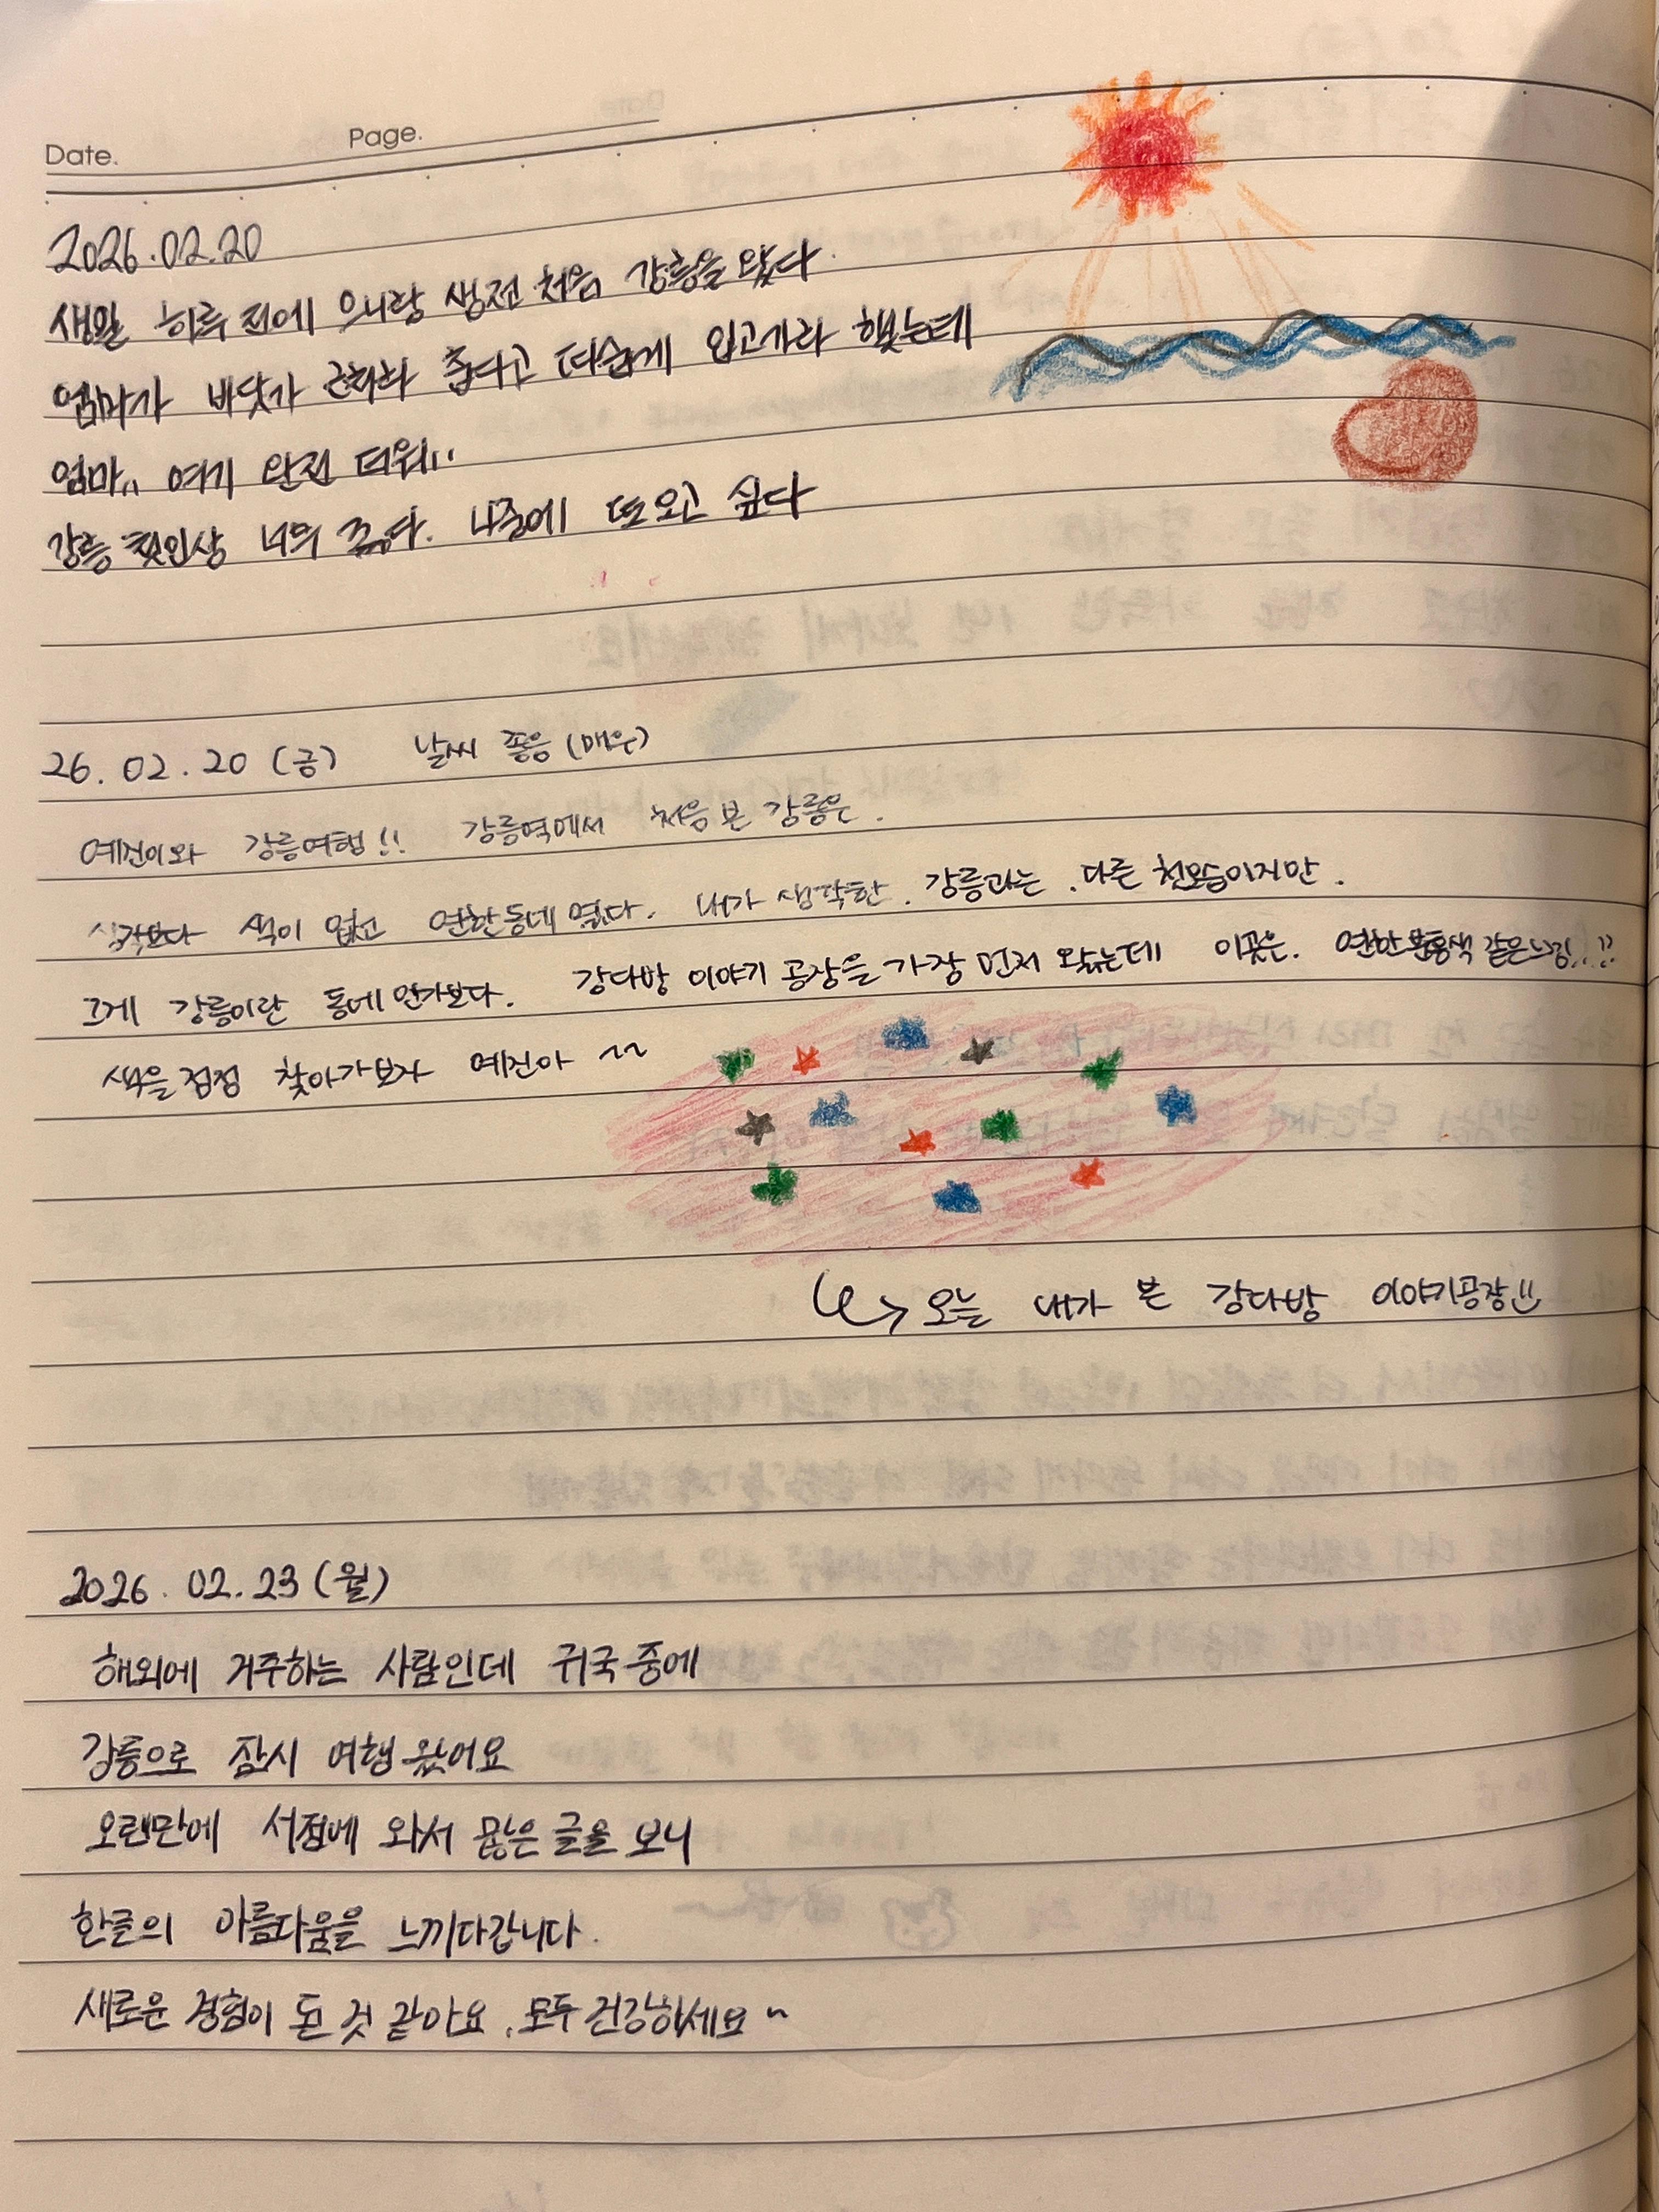 Date.
Page.
2026.02.20
생일 하루 전에 으니랑 생전 처음 강릉을 왔다.
엄마가 바닷가 근처라 춥다고 따숩게 입고가라 했는데
엄마.. 여기 완전 더워..
강릉 첫인상 너무 좋다. 나중에 또 오고 싶다
26.02.20 (금) 날씨 좋음 (매우)
예진이와 강릉여행!! 강릉역에서 처음 본 강릉은.
생각보다 색이 없고 연한 동네 였다. 내가 생각한. 강릉과는. 다른 첫모습이지만.
그게 강릉이란 동네인가보다. 강다방 이야기 공장을 가장 먼저 왔는데 이곳은. 연한 분홍색 같은 느낌..!!
색을 점점 찾아가보자 예진아 ~~
↳ 오늘 내가 본 강다방 이야기공장!!
2026. 02. 23 (월)
해외에 거주하는 사람인데 귀국 중에
강릉으로 잠시 여행 왔어요
오랜만에 서점에 와서 많은 글을 보니
한글의 아름다움을 느끼다갑니다.
새로운 경험이 된 것 같아요. 모두 건강하세요~